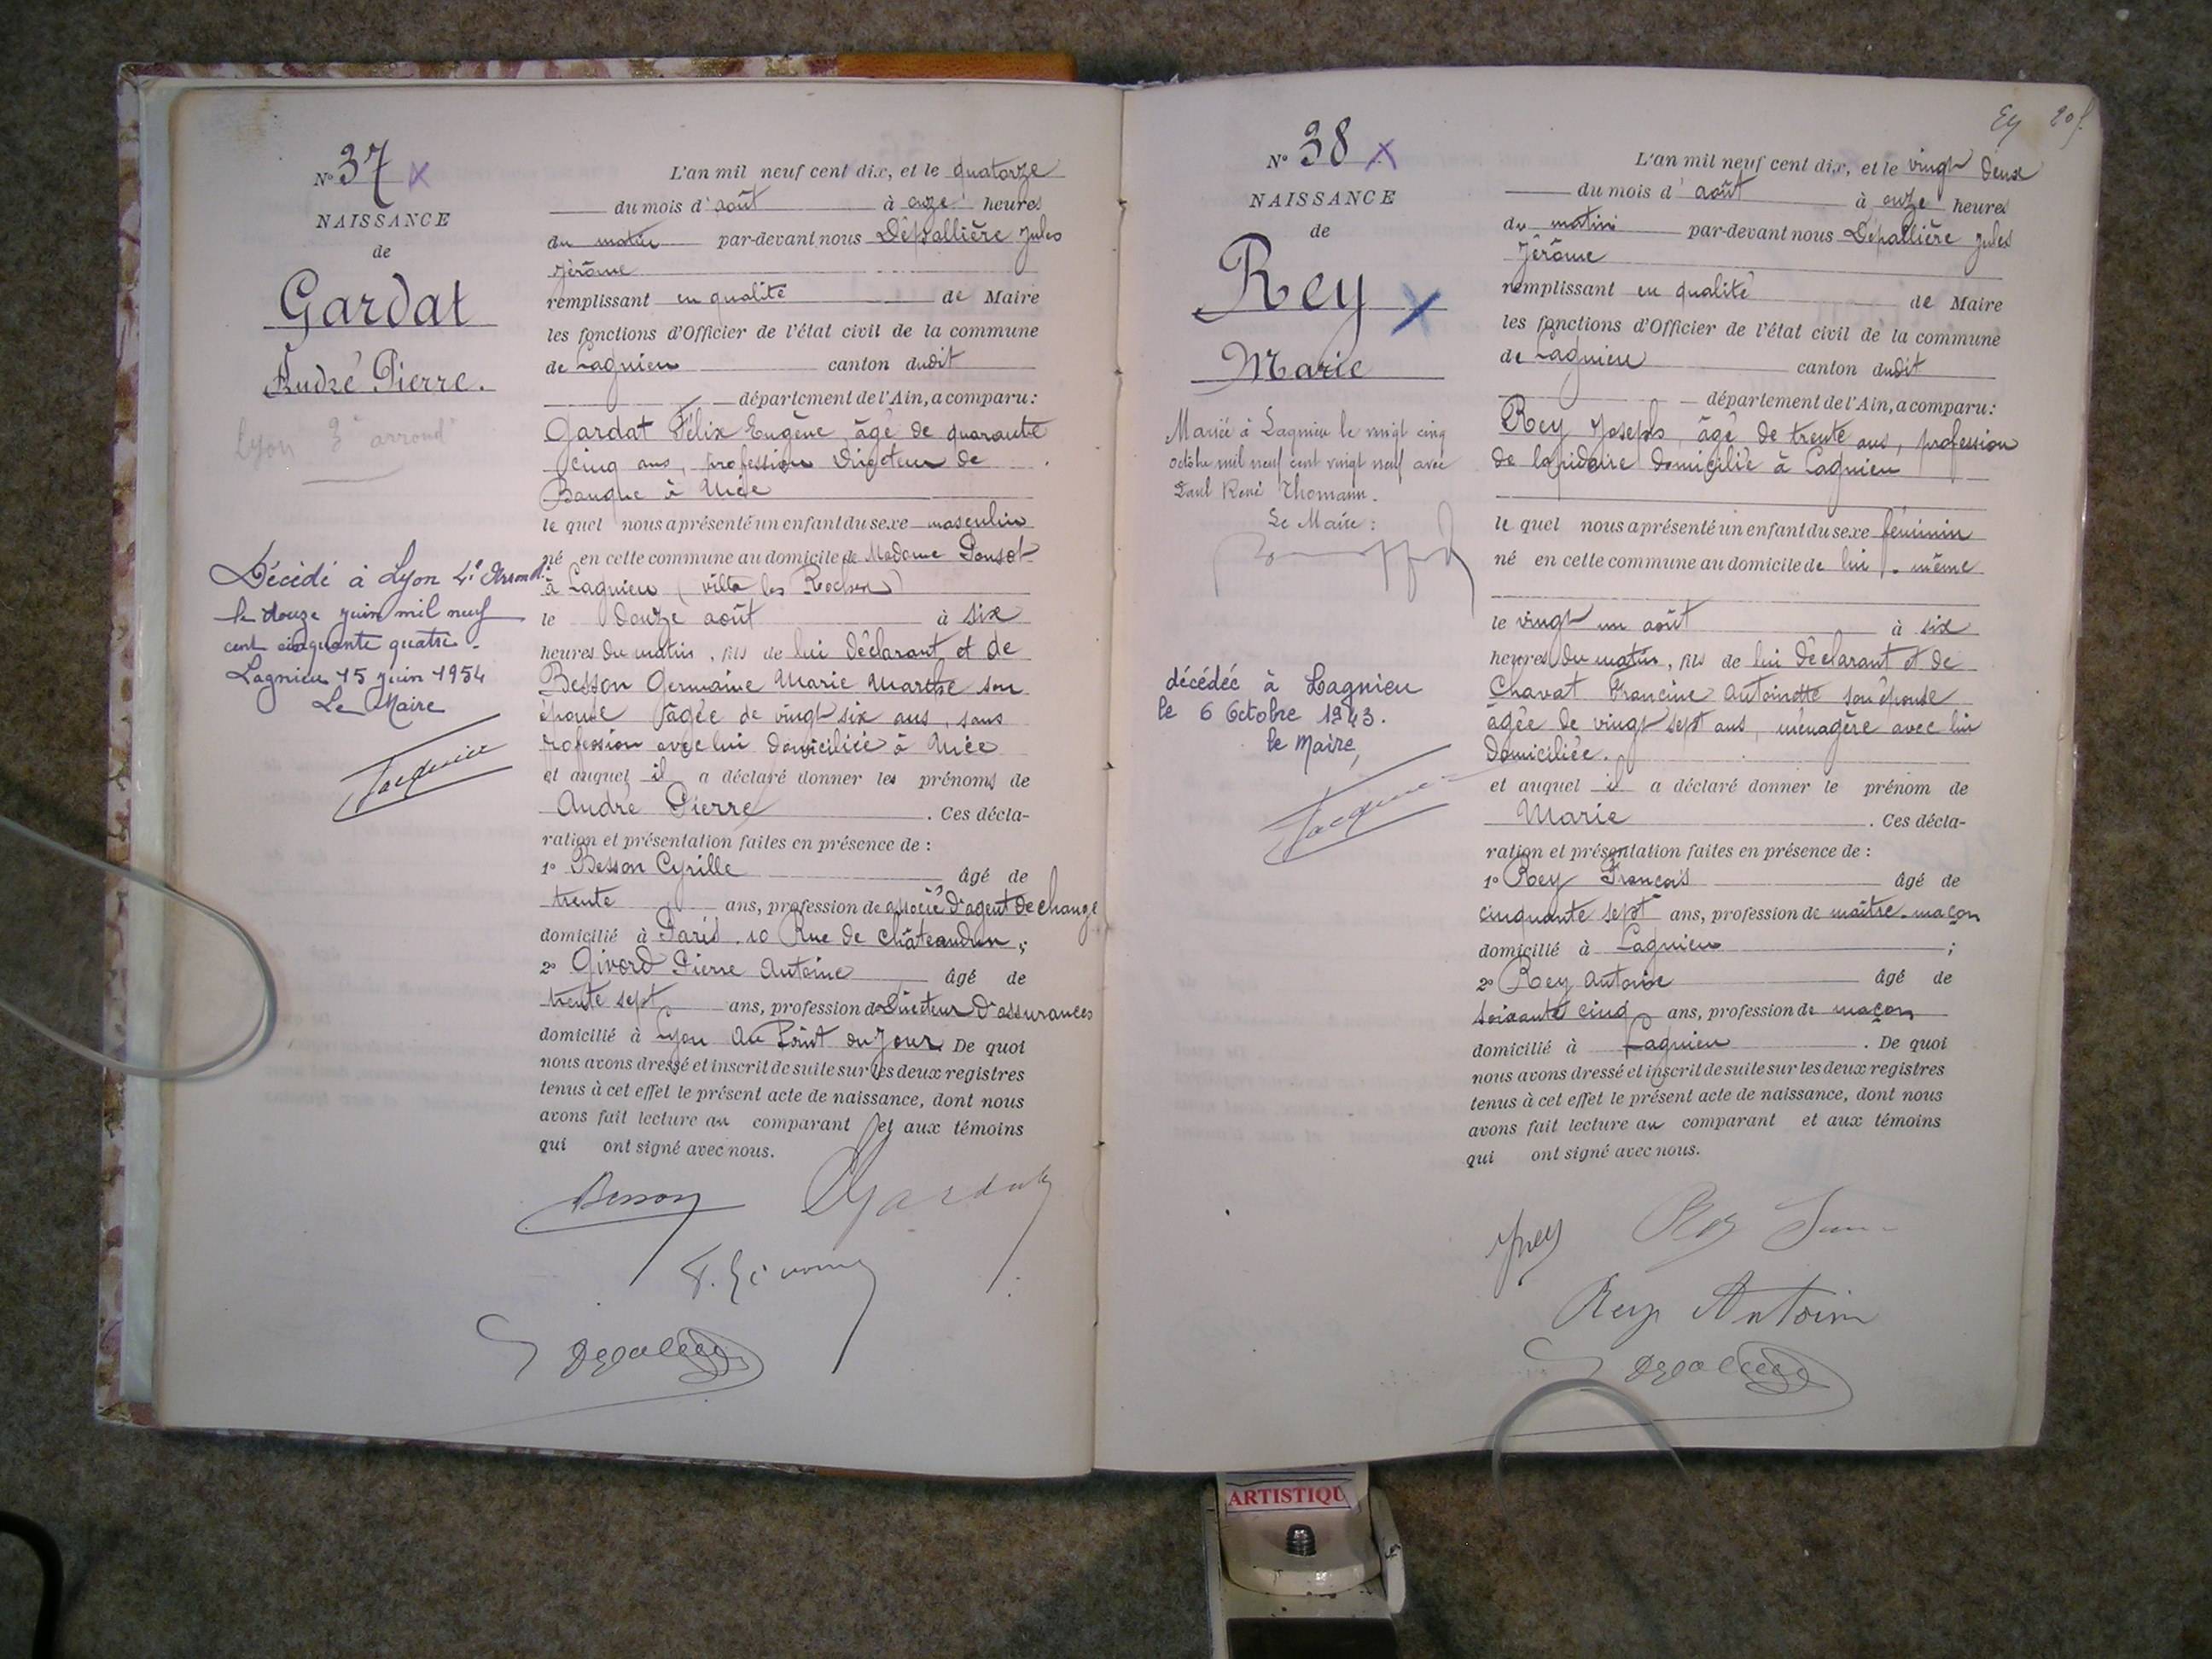 N° 37 X
NAISSANCE
de
Gardat
André Pierre.
Lyon 3e arrondt
Décédé à Lyon 4e Arrondt.
le douze juin mil neuf
cent cinquante quatre.
Lagnieu 15 juin 1954
Le Maire
L'an mil neuf cent dix, et le quatorze
du mois d'août à onze heures
du matin par-devant nous Dépallière Jules
Jérôme
remplissant en qualité de Maire
les fonctions d'Officier de l'état civil de la commune
de Lagnieu canton dudit
département de l'Ain, a comparu :
Gardat Félix Eugène, âgé de quarante
cinq ans, profession Directeur de
Banque à
le quel nous a présenté un enfant du sexe masculin
né en cette commune au domicile de Madame Ponsot
à Lagnieu (villa les Rochers)
le douze août à six
heures du matin, fils de lui déclarant et de
Besson Germaine Marie Marthe son
épouse âgée de vingt six ans, sans
profession avec lui domiciliée à
et auquel il a déclaré donner les prénoms de
André Pierre . Ces décla-
ration et présentation faites en présence de :
1° Besson Cyrille âgé de
trente ans, profession de associé d'agent de change
domicilié à Paris . 10 Rue de Châteaudun ;
2° Givord Pierre Antoine âgé de
trente sept ans, profession de Directeur d'assurances
domicilié à Lyon Au Point du Jour. De quoi
nous avons dressé et inscrit de suite sur les deux registres
tenus à cet effet le présent acte de naissance, dont nous
avons fait lecture au comparant et aux témoins
qui ont signé avec nous.
Besson Gardat
N° 38 X
NAISSANCE
de
Rey X
Marie
Mariée à Lagnieu le vingt cinq
octobre mil neuf cent vingt neuf avec
Paul René Thomann.
Le Maire :
décédée à Lagnieu
le 6 Octobre 1943.
le Maire,
L'an mil neuf cent dix, et le vingt deux
du mois d'août à onze heures
du matin par-devant nous Dépallière Jules
Jérôme
remplissant en qualité de Maire
les fonctions d'Officier de l'état civil de la commune
de Lagnieu canton dudit
département de l'Ain, a comparu :
Rey Joseph, âgé de trente ans, profession
de lapidaire domicilié à Lagnieu
le quel nous a présenté un enfant du sexe féminin
né en cette commune au domicile de lui-même
le vingt un août à six
heures du matin, fils de lui déclarant et de
Chavat Francine Antoinette son épouse
âgée de vingt sept ans, ménagère avec lui
domiciliée.
et auquel il a déclaré donner le prénom de
Marie . Ces décla-
ration et présentation faites en présence de :
1° Rey François âgé de
cinquante sept ans, profession de maître-maçon
domicilié à Lagnieu ;
2° Rey Antoine âgé de
soixante cinq ans, profession de maçon
domicilié à Lagnieu . De quoi
nous avons dressé et inscrit de suite sur les deux registres
tenus à cet effet le présent acte de naissance, dont nous
avons fait lecture au comparant et aux témoins
qui ont signé avec nous.
Rey Antoine
ARTISTIQU